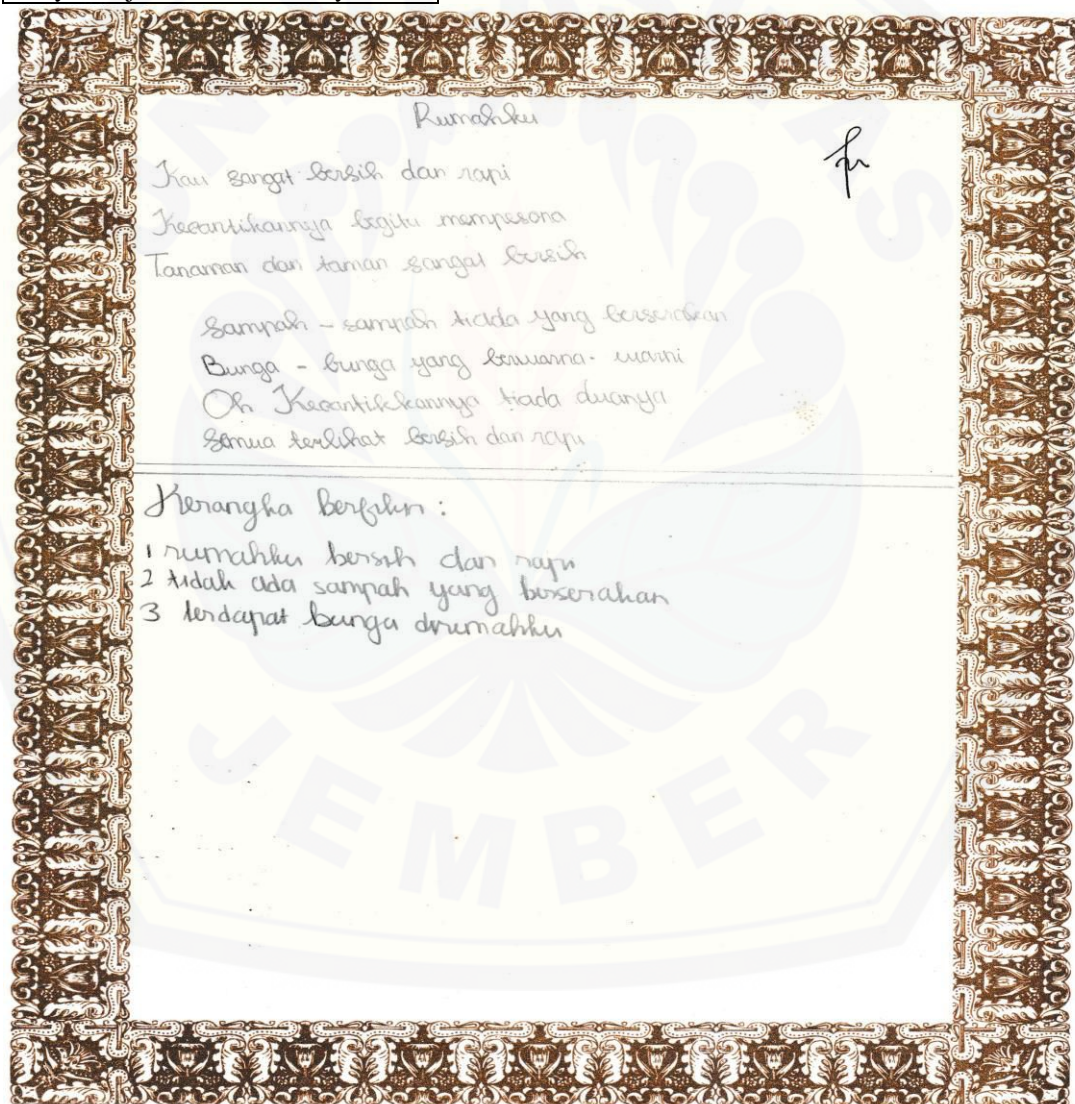 Rumahku
Kau sangat bersih dan rapi
Kecantikannya begitu mempesona
Tanaman dan taman sangat bersih
Sampah - sampah tiada yang berserakan
Bunga - bunga yang berwarna - warni
Oh Kecantikkannya tiada duanya
Semua terlihat bersih dan rapi
Kerangka berfikir :
1 rumahku bersih dan rapi
2 tidak ada sampah yang berserakan
3 terdapat bunga dirumahku
JEMBER